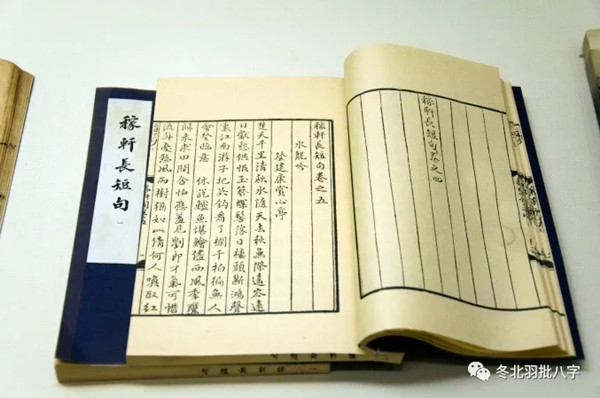 稼軒長短句卷之四
稼軒長短句卷之五
水龍吟
登建康賞心亭
楚天千里清秋水隨天去秋無際遥岑遠
目獻愁供恨玉簪螺髻落日樓頭斷鴻聲
裏江南游子把吳鈎看了欄干拍徧無人
會登臨意 休説鱸魚堪鱠儘西風季鷹
歸未求田問舍怕應羞見劉郎才氣可惜
流年憂愁風雨樹猶如此倩何人喚取紅
稼軒長短句 一
冬北羽批八字